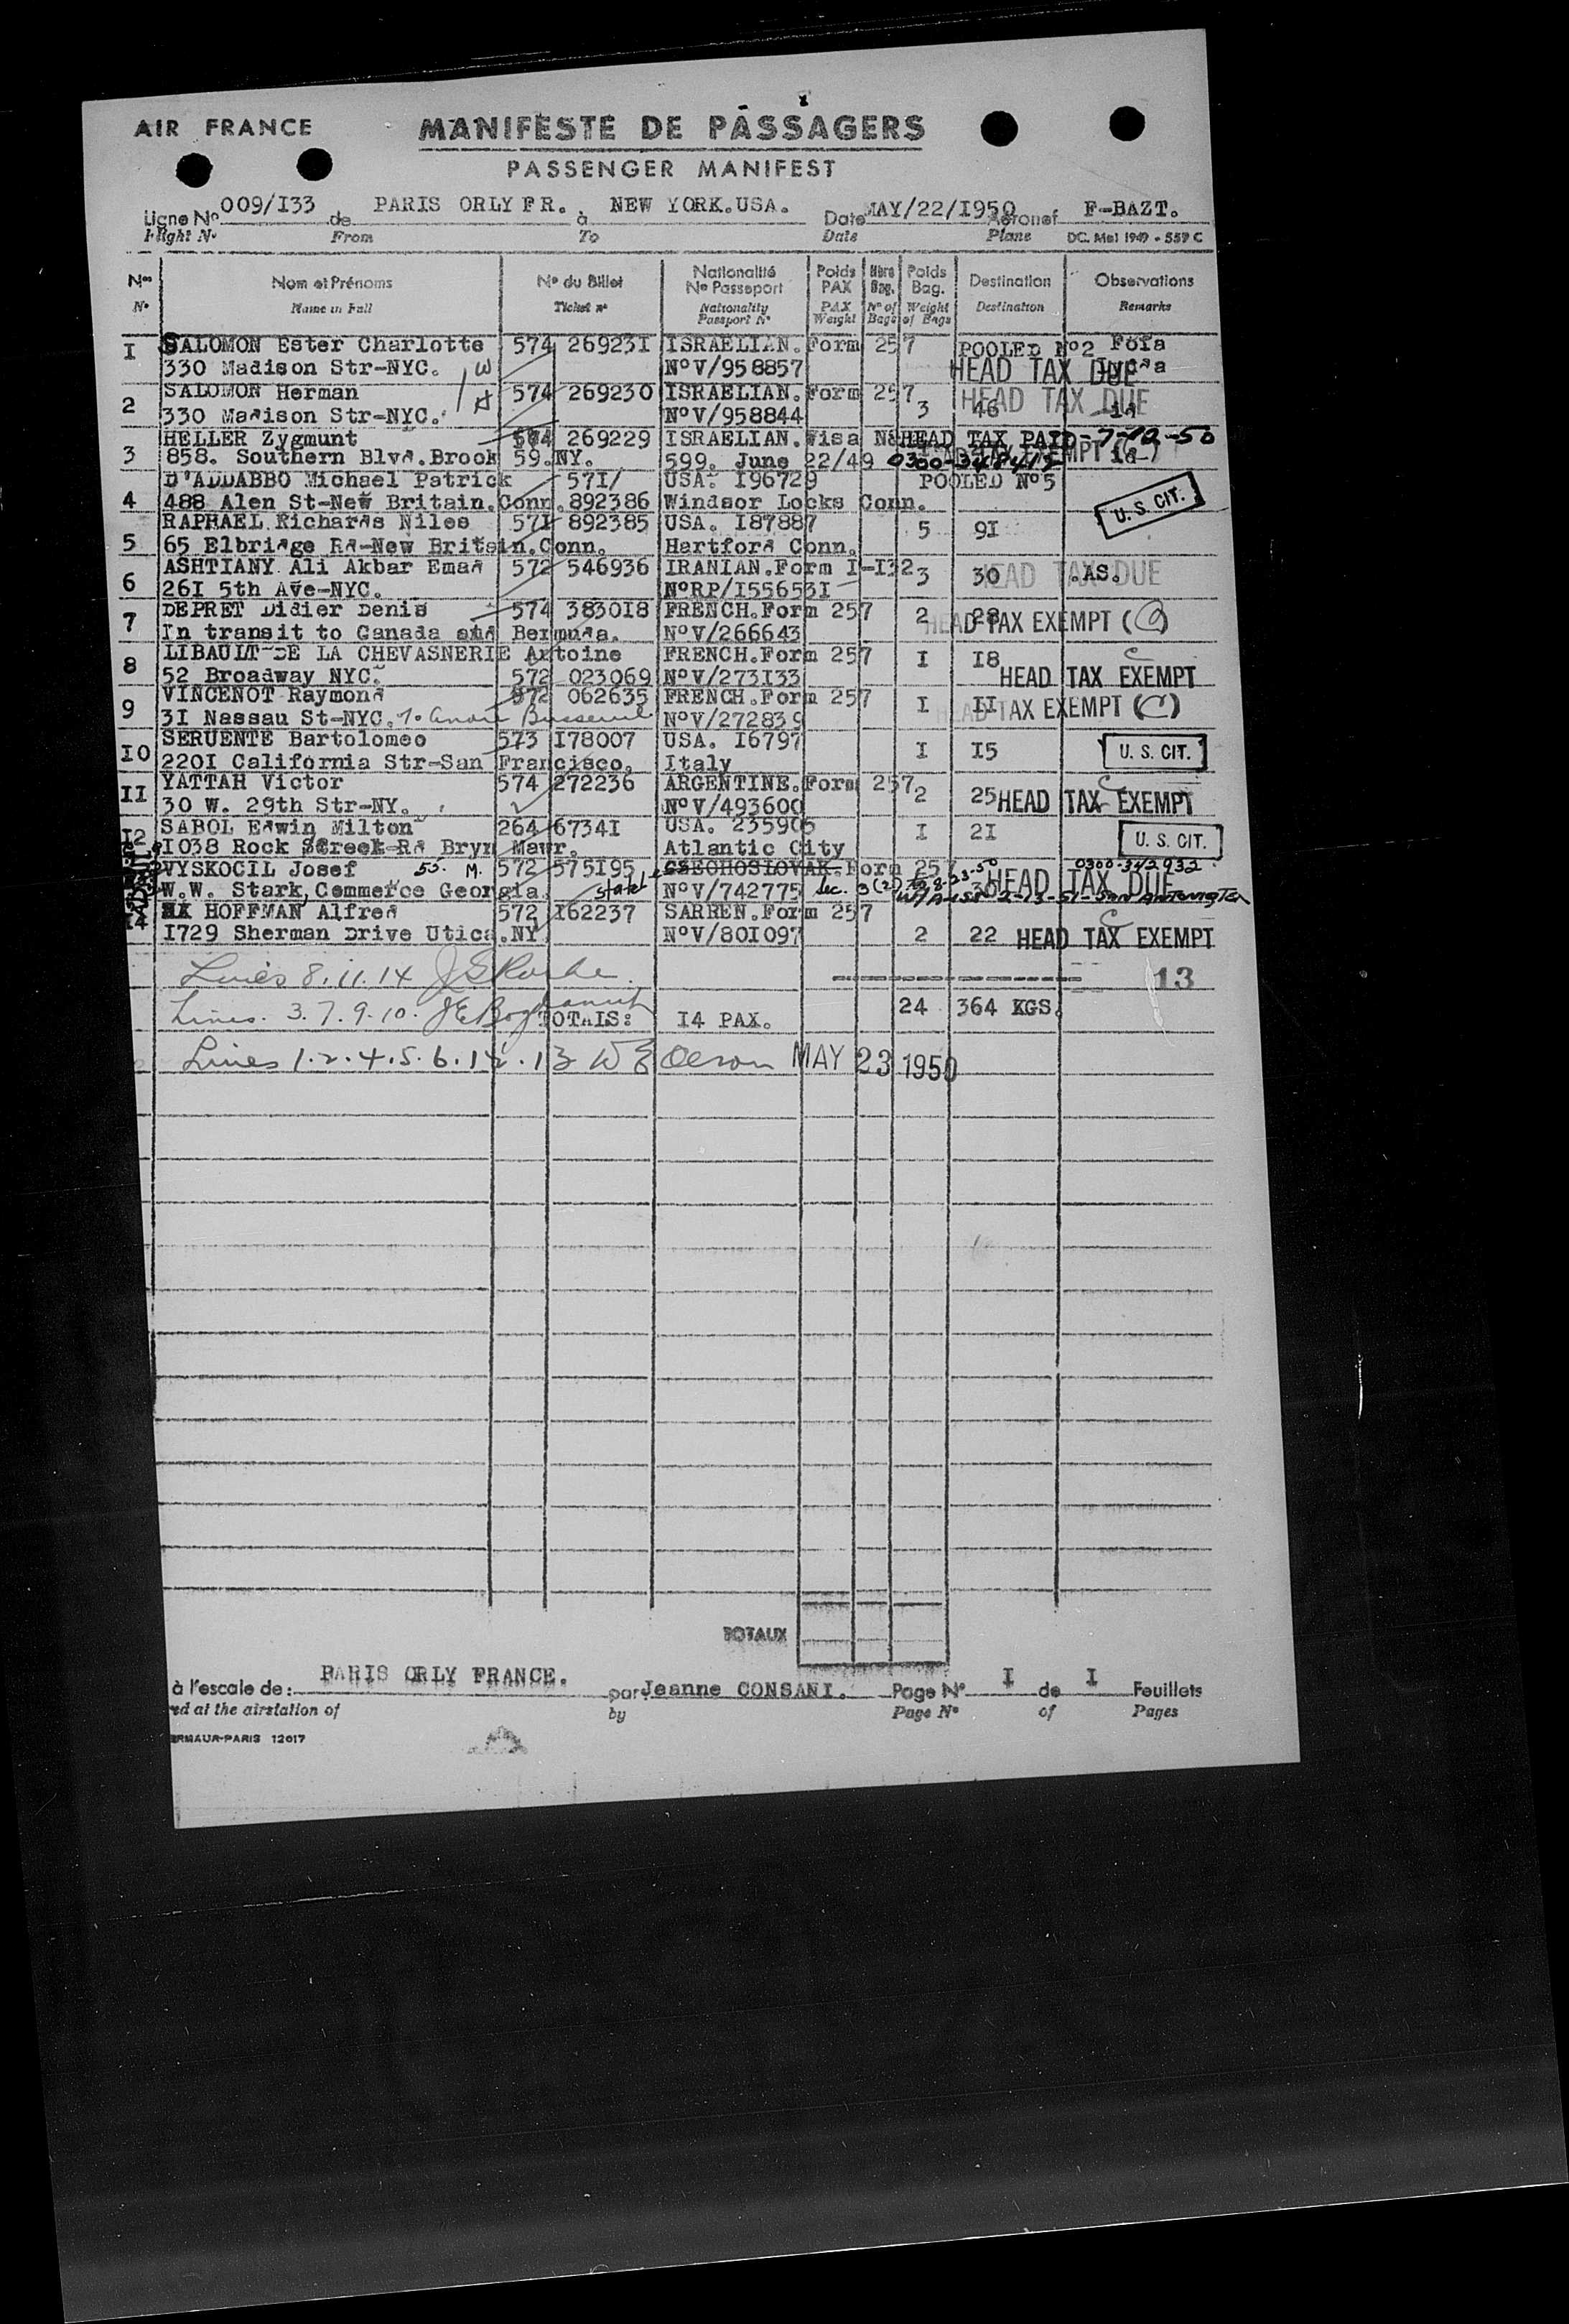 AIR FRANCE
MANIFESTE DE PASSAGERS
PASSENGER MANIFEST
Ligne No 009/I33 de PARIS ORLY FR. à NEW YORK.USA. Date MAY/22/I950 Aéronef F-BAZT.
Flight No From To Date Plane DC. Mel 1949 - 559 C
Nos Nom et Prénoms No du Billet Nationalité No Passeport Poids PAX Nbre Bag. Poids Bag. Destination Observations
No Name in Full Ticket no Nationality Passport No PAX Weight No of Bags Weight of Bags Destination Remarks
I SALOMON Ester Charlotte 574 26923I ISRAELIAN. Form 257 POOLED No2
330 Madison Str-NYC. W NoV/958857 HEAD TAX DUE
2 SALOMON Herman 574 269230 ISRAELIAN. Form 257 3 46 HEAD TAX DUE
330 Madison Str-NYC. NoV/958844
3 HELLER Zygmunt 574 269229 ISRAELIAN. Visa HEAD TAX PAID-7-10-50
858. Southern Blvd.Brook 59.NY. 599. June 22/49
4 D'ADDABBO Michael Patrick 57I/ USA. I96729 POOLED No5
488 Alen St-New Britain.Conn. 892386 Windsor Locks Conn. U. S. CIT.
5 RAPHAEL Richards Niles 57I 892385 USA. I87887 5 9I
65 Elbridge Rd-New Britain.Conn. Hartford Conn.
6 ASHTIANY Ali Akbar Emad 572 546936 IRANIAN.Form I-I32 3 30 .AS. HEAD TAX DUE
26I 5th Ave-NYC. NoRP/I55653I
7 DEPRET Didier Denis 574 3830I8 FRENCH.Form 257 2 28 HEAD TAX EXEMPT
In transit to Canada and Bermuda. NoV/266643
8 LIBAULT DE LA CHEVASNERIE Antoine FRENCH.Form 257 I I8 C
52 Broadway NYC. 572 023069 NoV/273I33 HEAD TAX EXEMPT
9 VINCENOT Raymond 572 062635 FRENCH.Form 257 I II HEAD TAX EXEMPT (C)
3I Nassau St-NYC. NoV/272839
I0 SERUENTE Bartolomeo 573 I78007 USA. I6797 I I5 U. S. CIT.
220I California Str-San Francisco. Italy
II YATTAH Victor 574 272236 ARGENTINE.Form 257 2 25 C HEAD TAX EXEMPT
30 W. 29th Str-NY. NoV/493600
I2 SABOL Edwin Milton 264 6734I USA. 235905 I 2I U. S. CIT.
I038 Rock Creek Rd Bryn Mawr. Atlantic City
WYSKOCIL Josef 55. M. 572 575I95 CSECHOSLOVAK.Form 257 0300-342932
W.W. Stark, Commerce Georgia. NoV/742775 HEAD TAX DUE
I4 HOFFMAN Alfred 572 I62237 SARREN.Form 257 C
I729 Sherman Drive Utica.NY. NoV/80I097 2 22 HEAD TAX EXEMPT
Lines 8.11.14 13
Lines. 3.7.9.10. TOTALS: I4 PAX. 24 364 KGS.
Lines 1.2.4.5.6.12.13 MAY 23 1950
TOTAUX
à l'escale de: PARIS ORLY FRANCE. par Jeanne CONSANI. Page No I de I Feuillets
ed at the airstation of by Page No of Pages
ERMAUR-PARIS 12017